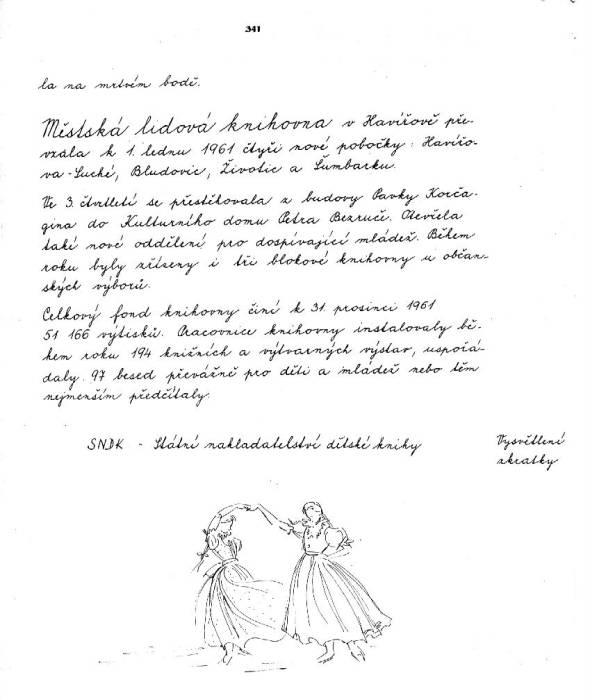 341
la na mrtvém bodě.
Městská lidová knihovna v Havířově pře-
vzala k 1. lednu 1961 čtyři nové pobočky: Havířo-
va-Suché, Bludovic, Životic a Šumbarku.
Ve 3. čtvrtletí se přestěhovala z budovy Pavky Korča-
gina do Kulturního domu Petra Bezruče. Otevřela
také nové oddělení pro dospívající mládež. Během
roku byly zřízeny i tři blokové knihovny u občan-
ských výborů.
Celkový fond knihovny činí k 31. prosinci 1961
51 166 výtisků. Pracovnice knihovny instalovaly bě-
hem roku 194 knižních a výtvarných výstav, uspořá-
daly 97 besed převážně pro děti a mládež nebo těm
nejmenším předčítaly.
SNDK - Státní nakladatelství dětské knihy
Vysvětlení
zkratky